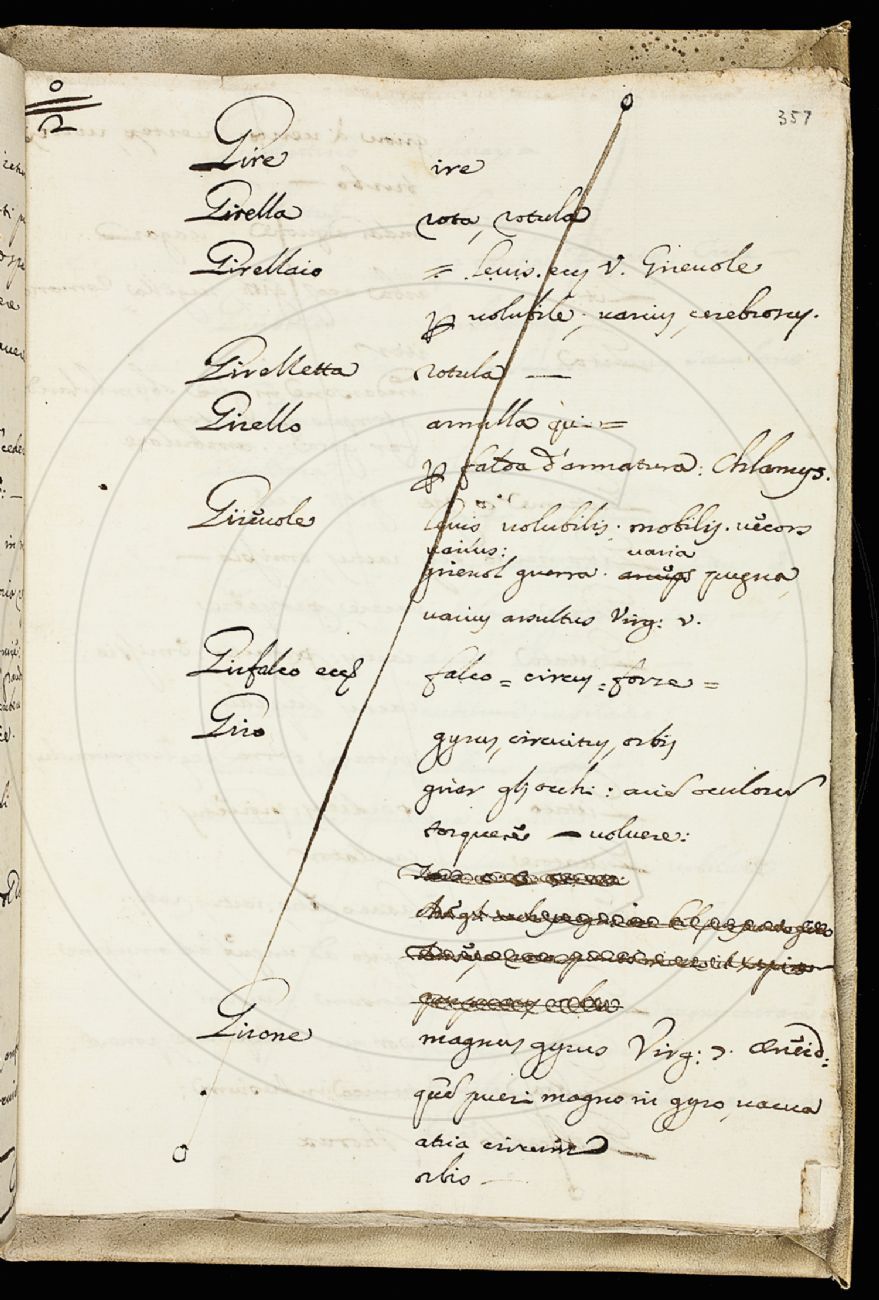 357
Gire ire
Girella rota, rotula
Girellaio = levis. ecc v. Girevole
volubile, varius, cerebrosus.
Girelletta rotula —
Girello armilla =
falda d'armatura: Chlamys.
Girevole levis volubilis. mobilis. vecors
varius: varia
girevol guerra. pugna,
varius assultus Virg: v.
Girfalco ecc falco = circus = forze =
Giro gyrus, circuitus, orbis
girar gli occhi: oculorum
torquere — volvere:
Girone magnus gyrus Virg: 7. Æneid:
quem pueri magno in gyro, vacua
atria circum —
orbis —